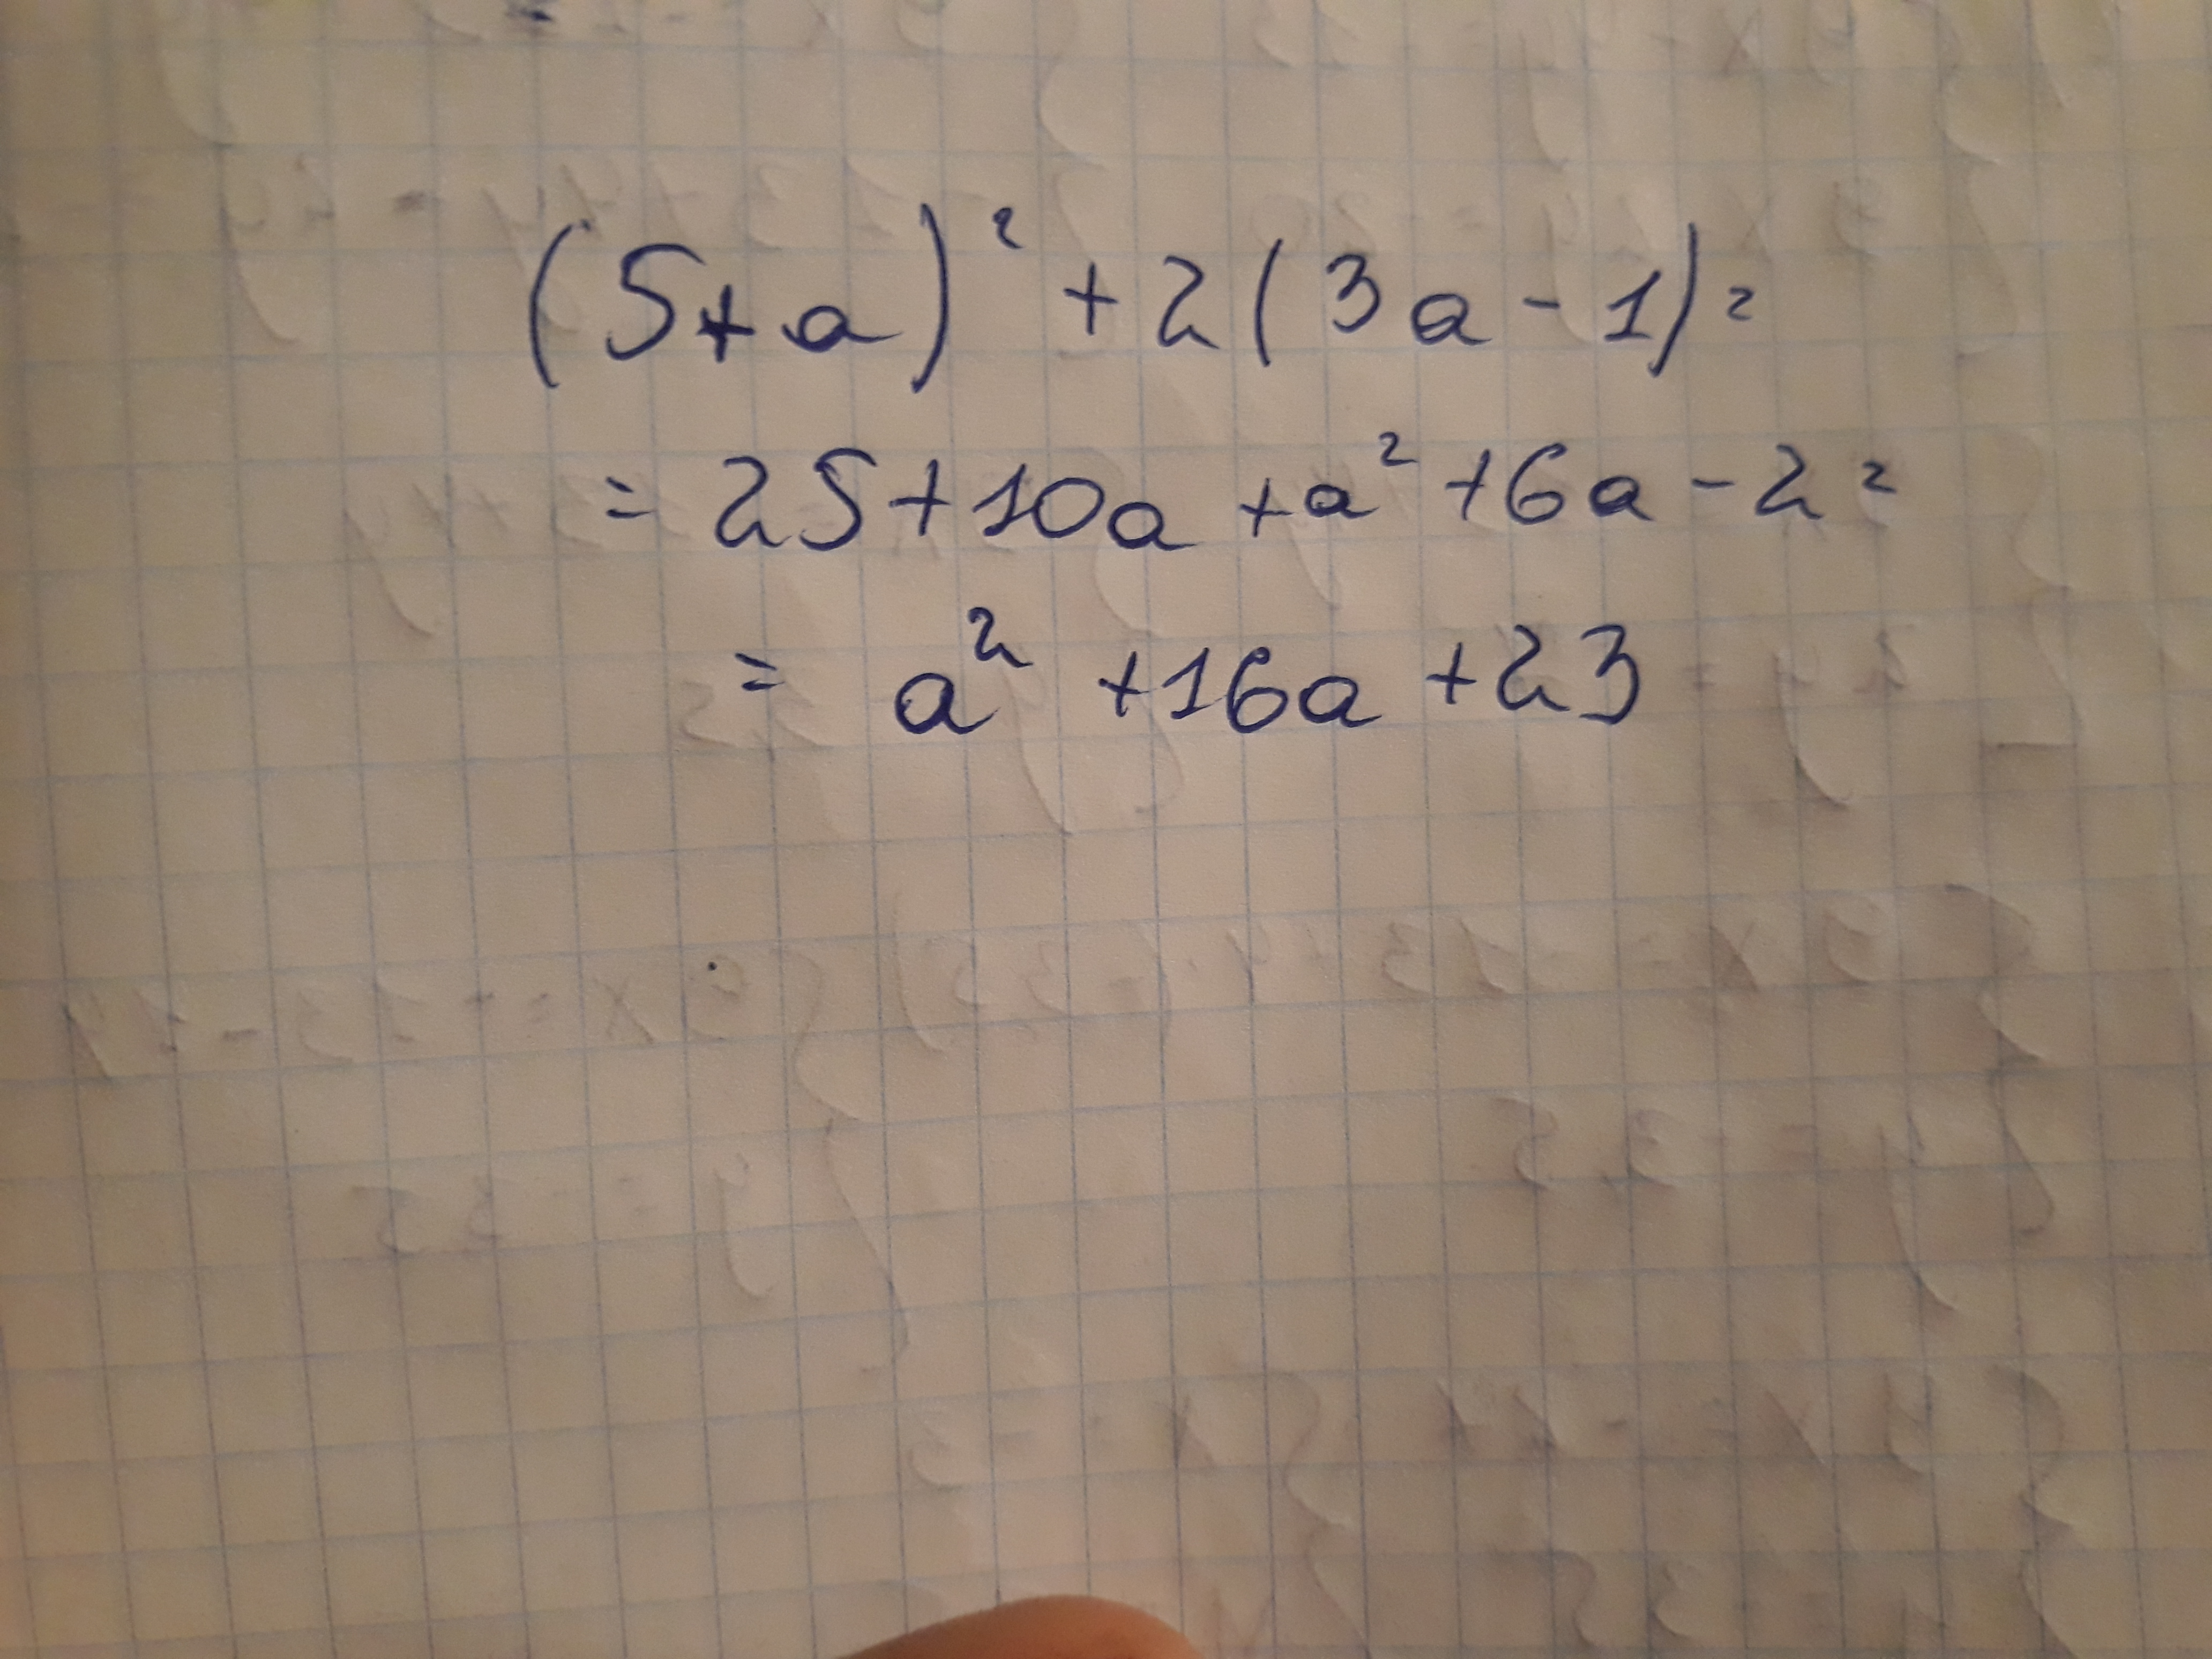 (5+a)² +2(3a-1)=
= 25+10a +a² +6a-2=
= a² +16a +23